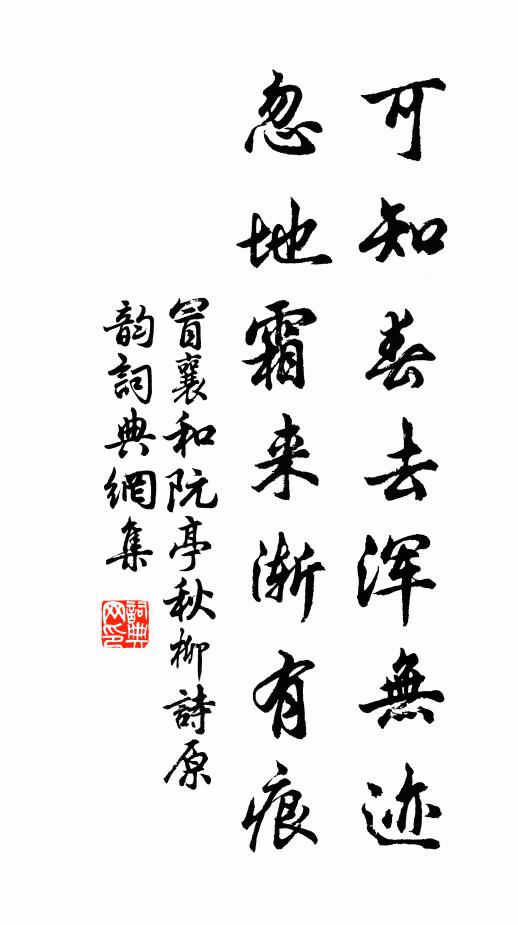 可知春去浑無迹
忽地霜来渐有痕
冒襄和阮亭秋柳詩原
韵詞典網集
詞典网印